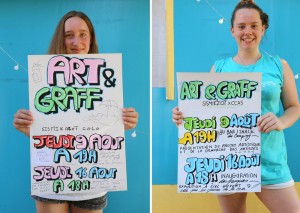 ART &
GRAFF
JEUDI 9 AOÛT
A 19H
JEUDI 16 AOÛT
A 18H
ART & GRAFF
JEUDI 9 AOÛT
A 19H
PRÉSENTATION DU PROJET ARTISTIQUE
JEUDI 16 AOÛT
A 18H INAUGURATION